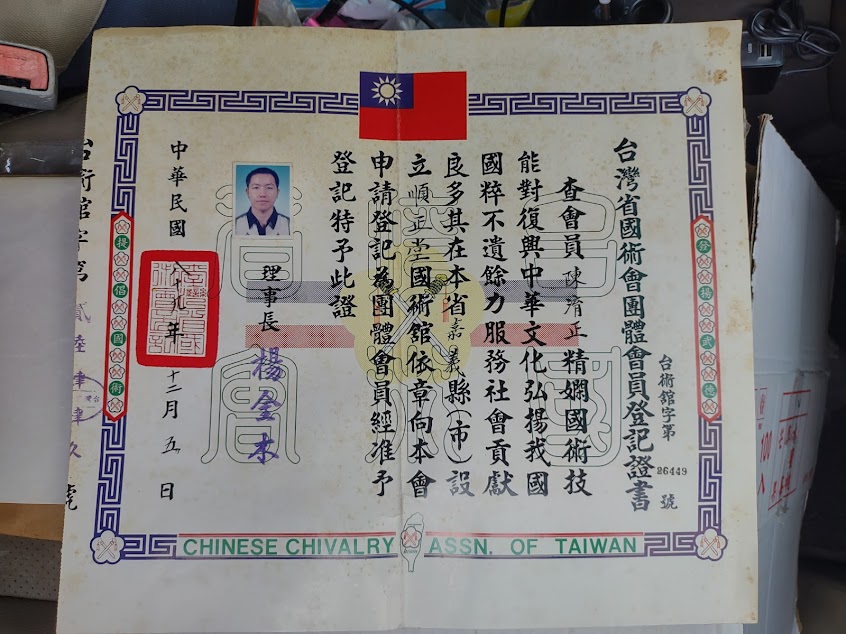 台灣省國術會團體會員登記證書
台術館字第26449號
查會員陳清正精嫻國術技
能對復興中華文化弘揚我國
國粹不遺餘力服務社會貢獻
良多其在本省嘉義縣(市)設
立順正堂國術館依章向本會
申請登記為團體會員經准予
登記特予此證
理事長 楊金木
中華民國八十九年十二月五日
發揚武德
提倡國術
CHINESE CHIVALRY ASSN. OF TAIWAN